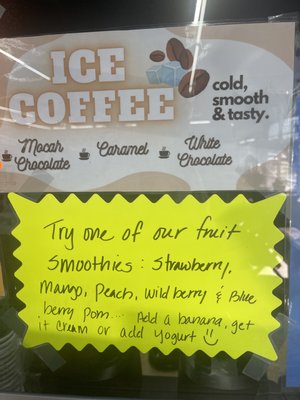 ICE
COFFEE
cold,
smooth
& tasty.
Mocah
Chocolate
Caramel
White
Chocolate
Try one of our fruit
Smoothies: Strawberry,
Mango, Peach, Wildberry & Blue
berry Pom.... Add a banana, get
it cream or add yogurt